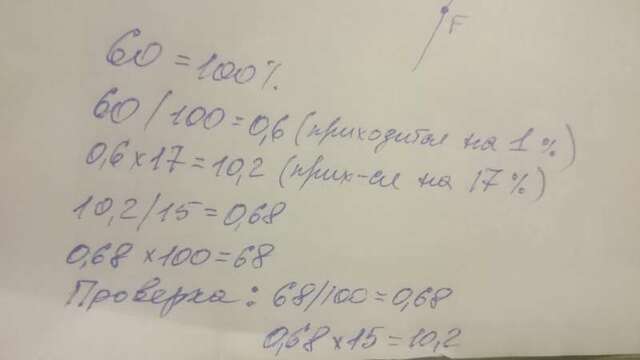 F
60 = 100%
60 / 100 = 0,6 (приходится на 1%)
0,6 × 17 = 10,2 (прих-ся на 17%)
10,2 / 15 = 0,68
0,68 × 100 = 68
Проверка: 68/100 = 0,68
0,68 × 15 = 10,2